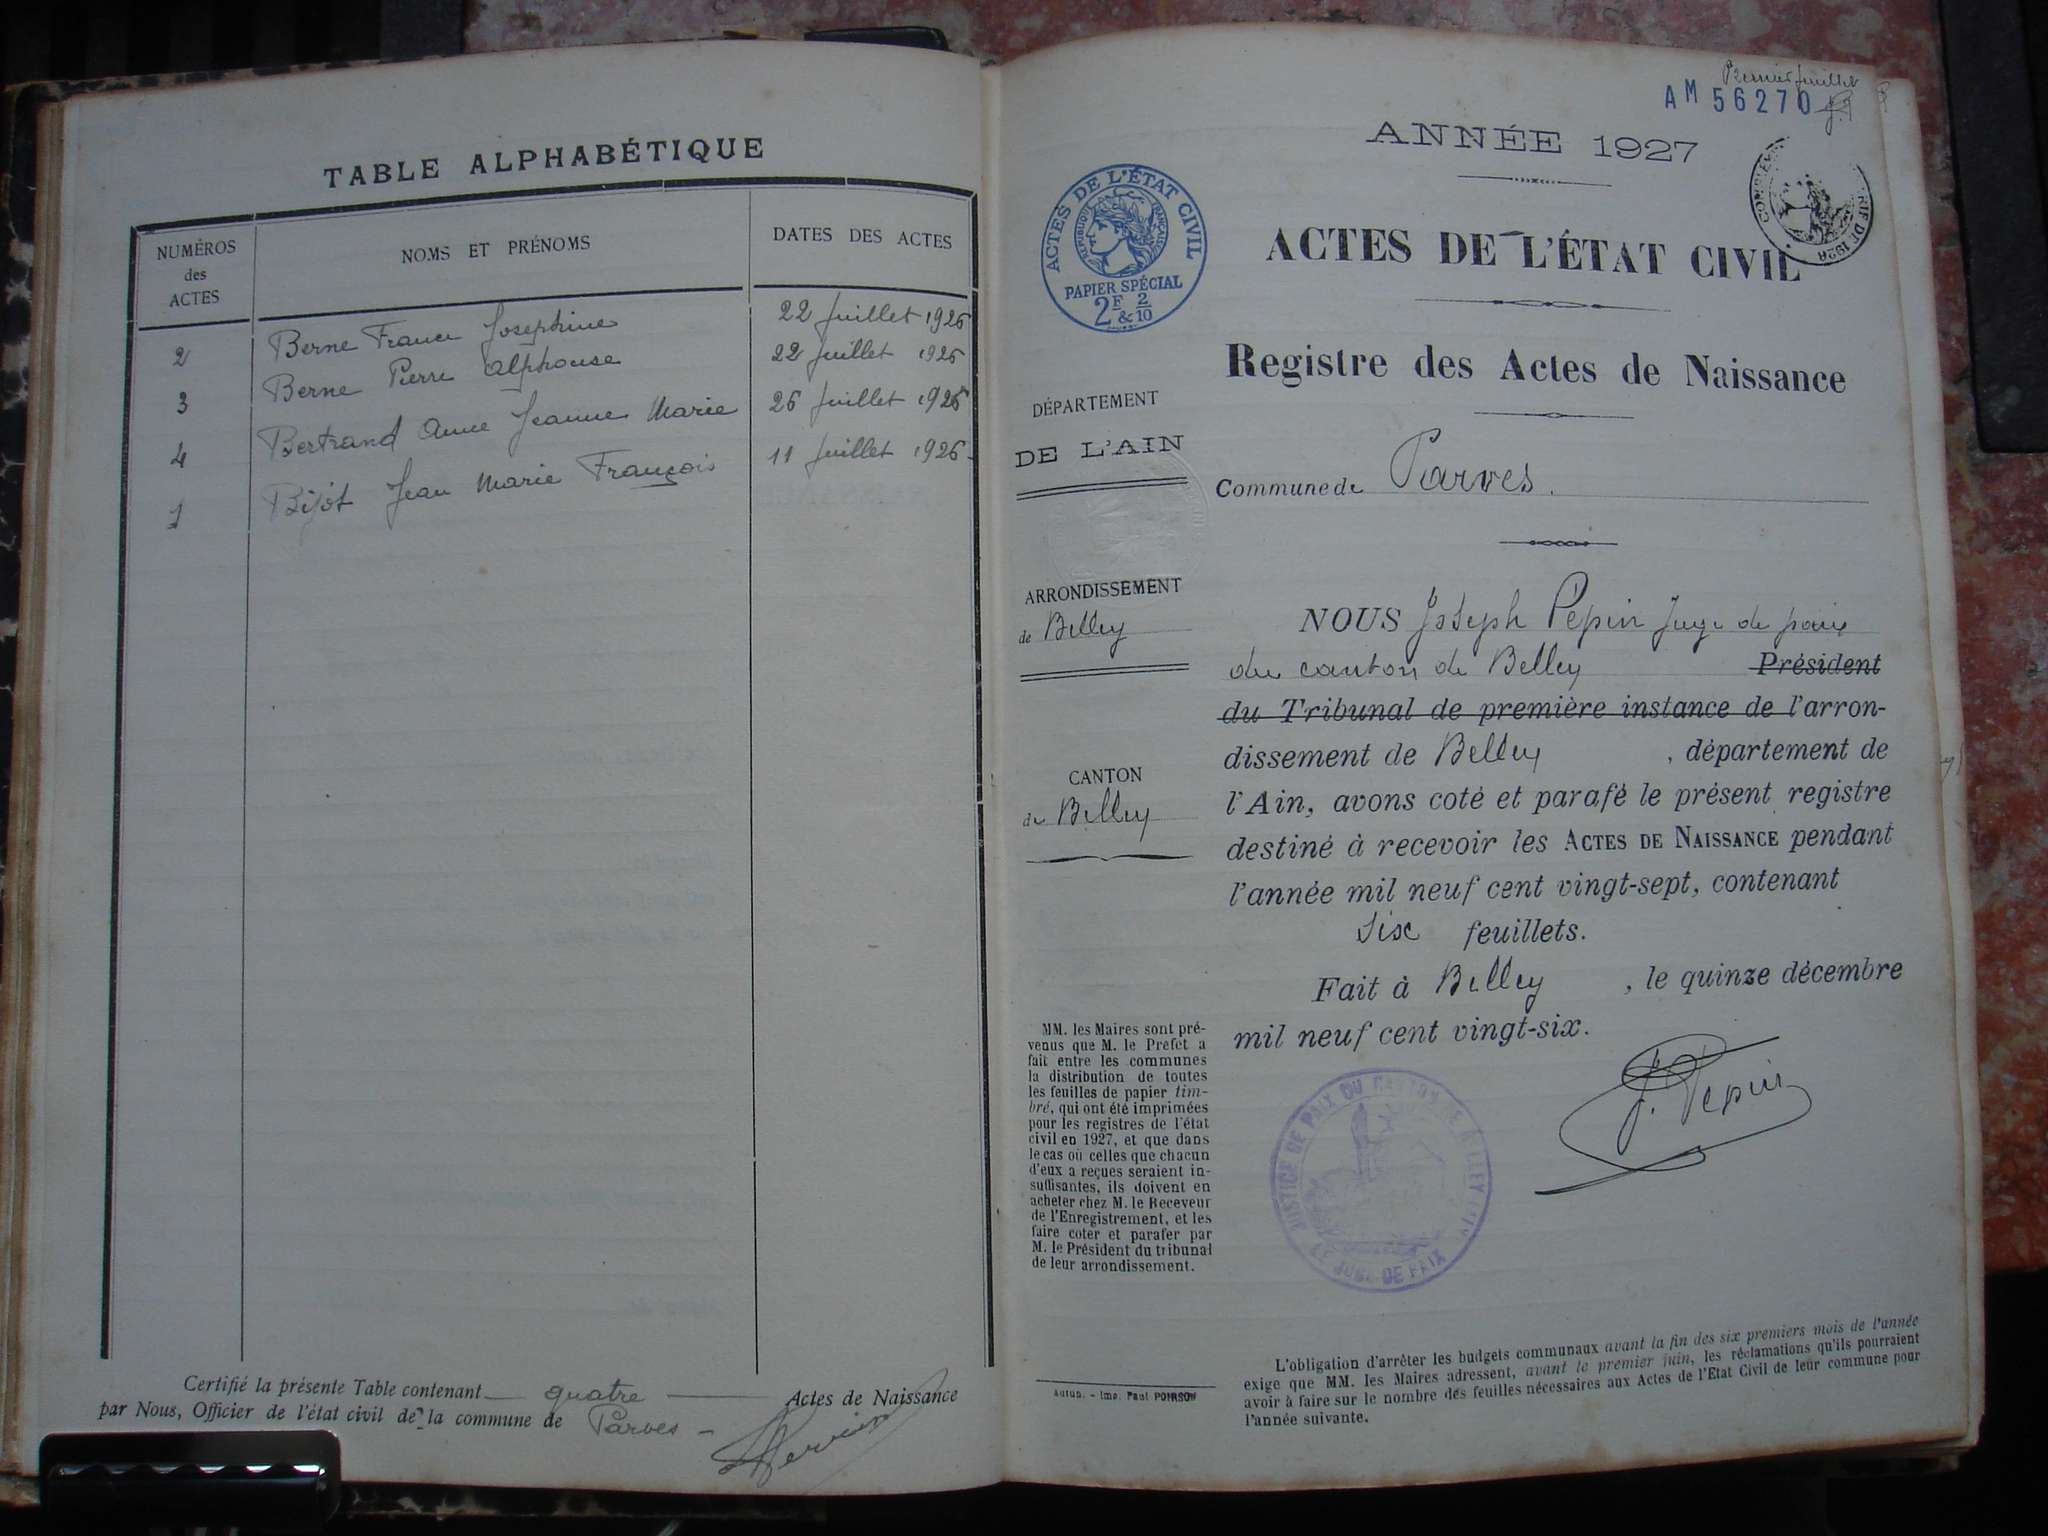 TABLE ALPHABÉTIQUE
NUMÉROS
des
ACTES
NOMS ET PRÉNOMS
DATES DES ACTES
2 Berne France Josephine 22 Juillet 1926
3 Berne Pierre Alphonse 22 Juillet 1926
4 Bertrand Anne Jeanne Marie 26 Juillet 1926
1 Bijot Jean Marie François 11 Juillet 1926
Certifié la présente Table contenant quatre Actes de Naissance
par Nous, Officier de l'état civil de la commune de Parves
Premier feuillet
AM 56270
ANNÉE 1927
ACTES DE L'ÉTAT CIVIL
RÉPUBLIQUE FRANÇAISE
PAPIER SPÉCIAL
2F & 2/10
ACTES DE L'ÉTAT CIVIL
Registre des Actes de Naissance
DÉPARTEMENT
DE L'AIN
Commune de Parves.
ARRONDISSEMENT
de Belley
CANTON
de Belley
NOUS Joseph Pépin Juge de paix
du canton de Belley Président
du Tribunal de première instance de l'arron-
dissement de Belley, département de
l'Ain, avons coté et parafé le présent registre
destiné à recevoir les ACTES DE NAISSANCE pendant
l'année mil neuf cent vingt-sept, contenant
Six feuillets.
Fait à Belley, le quinze décembre
mil neuf cent vingt-six.
J. Pepin
JUSTICE DE PAIX DU CANTON DE BELLEY
JUGE DE PAIX
MM. les Maires sont pré-
venus que M. le Prefet a
fait entre les communes
la distribution de toutes
les feuilles de papier tim-
bré, qui ont été imprimées
pour les registres de l'état
civil en 1927, et que dans
le cas où celles que chacun
d'eux a reçues seraient in-
suffisantes, ils doivent en
acheter chez M. le Receveur
de l'Enregistrement, et les
faire coter et parafer par
M. le Président du tribunal
de leur arrondissement.
Autun. - Imp. Paul POIRSON
L'obligation d'arrêter les budgets communaux avant la fin des six premiers mois de l'année
exige que MM. les Maires adressent, avant le premier juin, les réclamations qu'ils pourraient
avoir à faire sur le nombre des feuilles nécessaires aux Actes de l'Etat Civil de leur commune pour
l'année suivante.